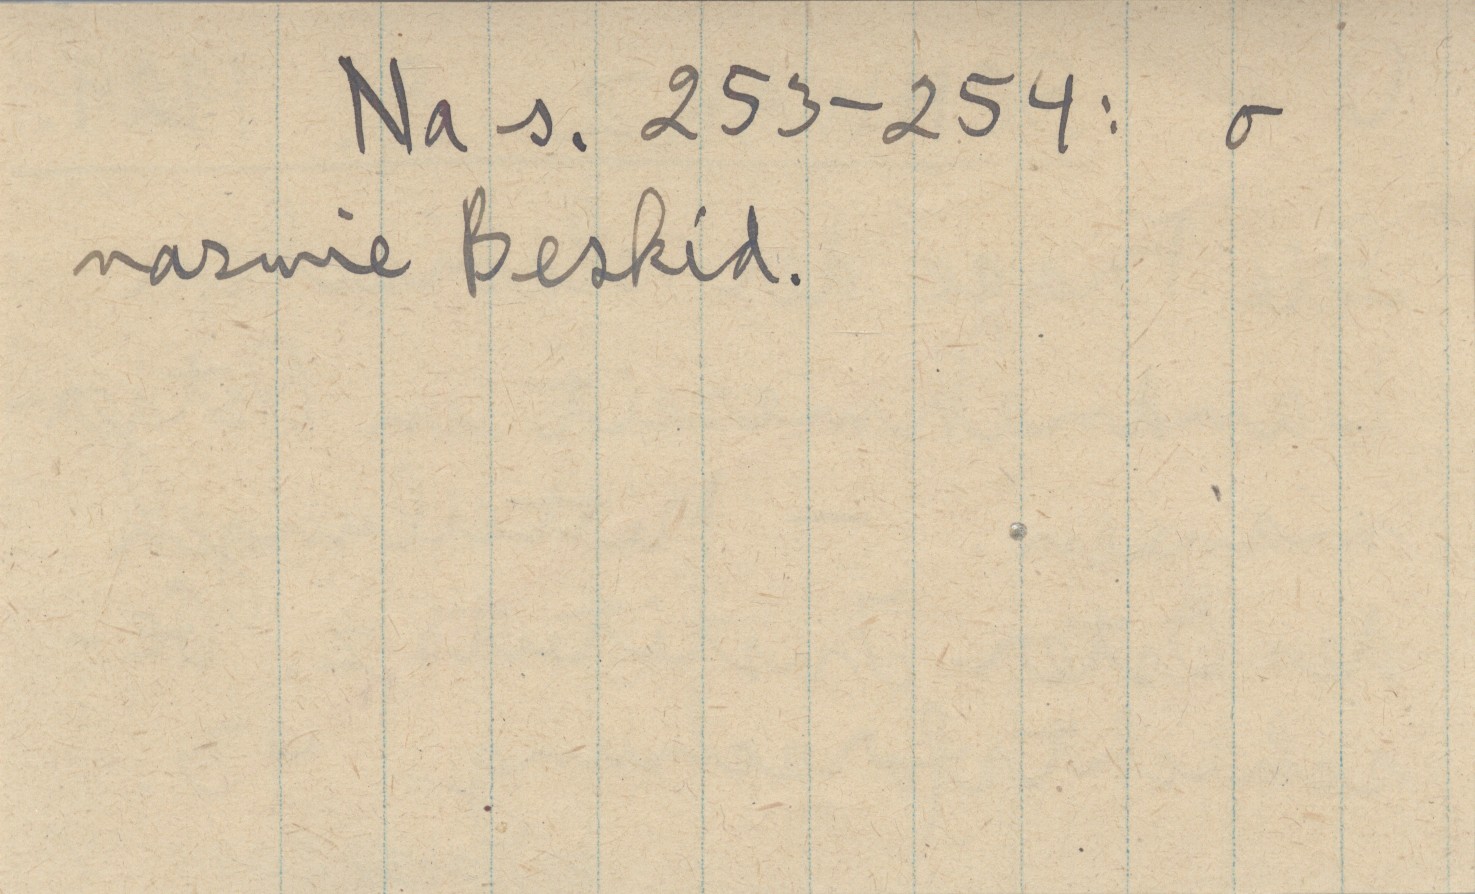 Na s. 253-254: o
nazwie Beskid.